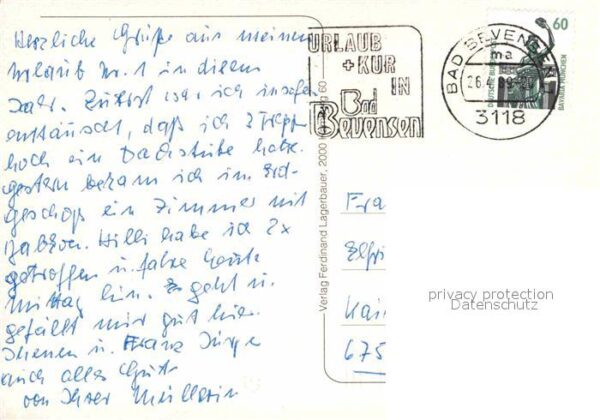 Herzliche Grüße aus meinem
Urlaub Nr. 1 in diesem
Jahr. Zuerst war ich insofern
enttäuscht, daß ich 2 Trepp
hoch ein Dachstube habe.
gestern bekam ich im Erd-
geschoß ein Zimmer mit
Balkon. Willi habe ich 2x
getroffen u. fahre heute
Mittag hin. Es geht u.
gefällt mir gut hier.
Ihnen u. Franz Jürgen
auch alles Gute
von Ihrer Müllerin
URLAUB
+ KUR
IN
Bad
Bevensen
BAD BEVENSEN 1
ma
26.4.89
3118
60
DEUTSCHE BUNDESPOST
BAVARIA MÜNCHEN
Verlag Ferdinand Lagerbauer, 2000 60
Fra
Elfri
Kais
675
privacy protection
Datenschutz